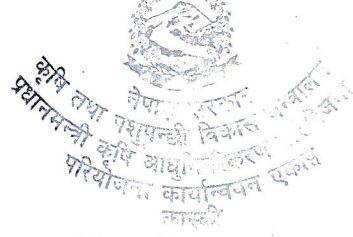 नेपाल सरकार
कृषि तथा पशुपन्छी विकास मन्त्रालय
प्रधानमन्त्री कृषि आधुनिकीकरण परियोजना
परियोजना कार्यान्वयन एकाई
कास्की